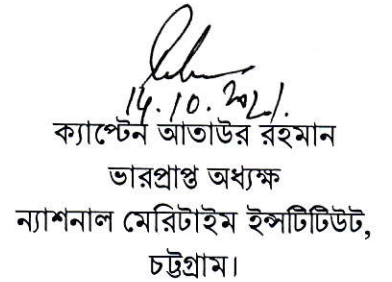 14.10.2021.
ক্যাপ্টেন আতাউর রহমান
ভারপ্রাপ্ত অধ্যক্ষ
ন্যাশনাল মেরিটাইম ইন্সটিটিউট,
চট্টগ্রাম।